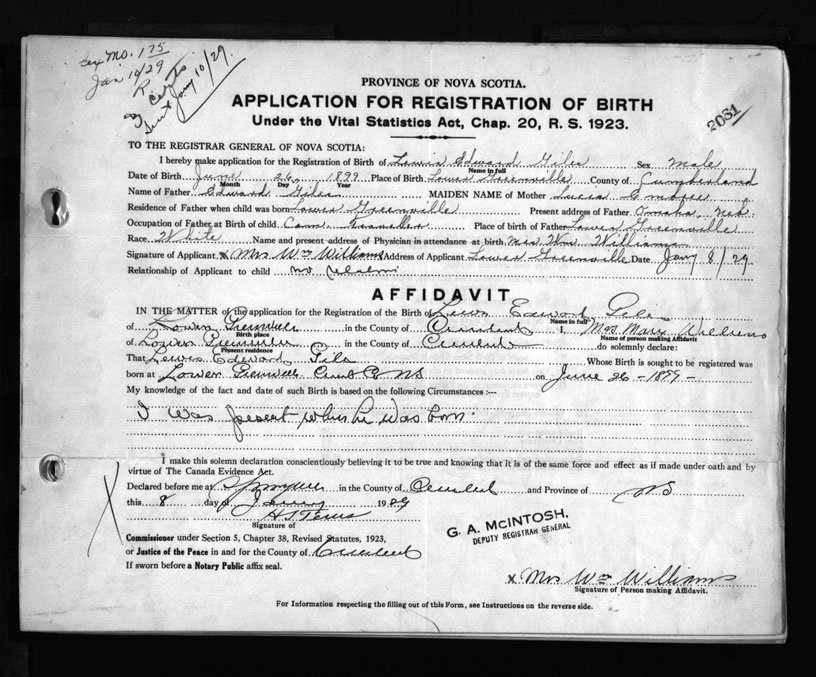 Ex Mo. 1 75
Jan 10/29
Sent Jany 10/29.
PROVINCE OF NOVA SCOTIA.
APPLICATION FOR REGISTRATION OF BIRTH
2081
Under the Vital Statistics Act, Chap. 20, R. S. 1923.
TO THE REGISTRAR GENERAL OF NOVA SCOTIA:
I hereby make application for the Registration of Birth of Lewis Edward Giles Sex Male
Name in full
Date of Birth June 26 1899 Place of Birth Lower Greenville County of Cumberland
Month Day Year
Name of Father Edward Giles MAIDEN NAME of Mother Lucia
Residence of Father when child was born Lower Greenville Present address of Father Omaha Neb.
Occupation of Father at Birth of child Com. Traveller Place of birth of Father Lower Greenville
Race White Name and present address of Physician in attendance at birth Mrs Wm. Williams
Signature of Applicant x Mrs Wm Williams Address of Applicant Lower Greenville Date Jany 8/29
Relationship of Applicant to child no relation
AFFIDAVIT
IN THE MATTER of the application for the Registration of the Birth of Lewis Edward Giles
Name in full
of Lower Greenville in the County of Cumberland I, Mrs Mary Williams
Birth place Name of person making Affidavit
of Lower Greenville in the County of Cumberland do solemnly declare:
Present residence
That Lewis Edward Giles Whose Birth is sought to be registered was
born at Lower Greenville Cumb Co NS on June 26 - 1899 -
My knowledge of the fact and date of such Birth is based on the following Circumstances :—
I was present when he was born.
I make this solemn declaration conscientiously believing it to be true and knowing that it is of the same force and effect as if made under oath and by
virtue of The Canada Evidence Act.
Declared before me at in the County of Cumberland and Province of NS
this 8 day of January 1929
Signature of
G. A. McINTOSH,
DEPUTY REGISTRAR GENERAL
Commissioner under Section 5, Chapter 38, Revised Statutes, 1923,
or Justice of the Peace in and for the County of Cumberland
If sworn before a Notary Public affix seal.
x Mrs Wm Williams
Signature of Person making Affidavit.
For Information respecting the filling out of this Form, see Instructions on the reverse side.